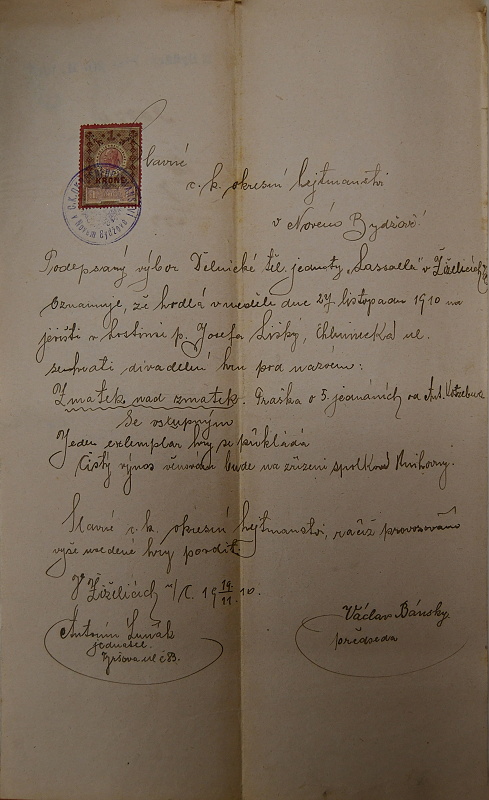 1
KRONE
v Novém Bydžově
Slavné
c. k. okresní hejtmanství
v Novém Bydžově
Podepsaný výbor Dělnické těl. jednoty „Lassalle" v Žíželicích n/C.
oznamuje, že hodlá v neděli dne 27 listopadu 1910 na
jevišti v hostinci p. Josefa Lišky, Chlumecká ul.
sehrati divadelní hru pod názvem:
Zmatek nad zmatek. Fraška o 5. jednáních od Aug. Kotzebue.
Se vstupným
Jeden exemplar hry se přikládá
Čistý výnos věnován bude na zřízení spolkové knihovny.
Slavné c. k. okresní hejtmanství, račiž provozování
výše uvedené hry povoliti
V Žíželicích n/C. 19 19/11. 10.
Antonín Luňák
jednatel
Tyršova ul č 83.
Václav Bánsky
předseda